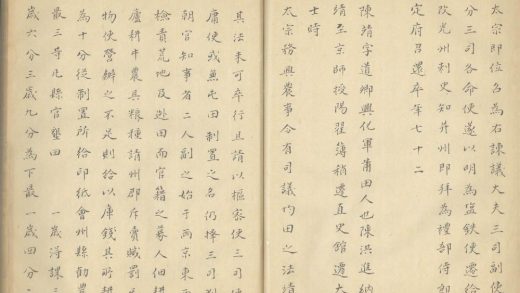 太宗即位召為右諫議大夫三司副使
分三司各命使遂以明為鹽鐵使遷給
改光州刺史知并州即拜為禮部侍郎
定府召還卒年七十二
陳靖字道卿興化軍莆田人也陳洪進納
靖至京師授陽翟簿稍遷直史館遷大
士時
太宗務興農事令有司議均田之法靖
其法未可卒行且請以樞密使三司使
庸使或兼屯田制置之名仍擇三司判
朝官知事者二人副之始于兩京東西
檢責荒地及逃田而官籍之募人佃耕
廬耕牛農具糧種請州郡斥賣贓罰
物使營辦之不足則給以庫錢其所耕
為十分從制置所給印紙會州縣勸農
最三等凡縣官墾田 一歲得課三
歲六分三歲九分為下最 一歲四分二